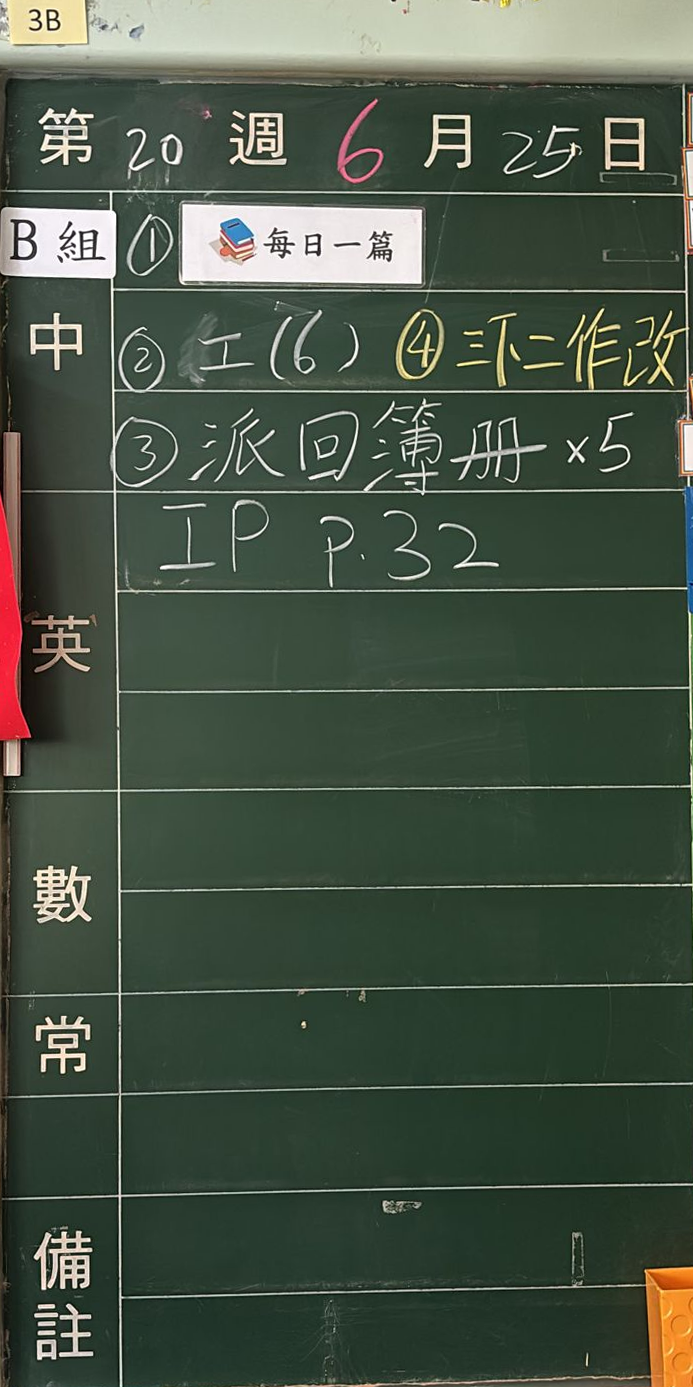 3B
第 20 週 6 月 25 日
B 組 ① 每日一篇
中 ② 工(6) ④ 三下二作改
③ 派回簿册 ×5
英 IP P.32
數
常
備註